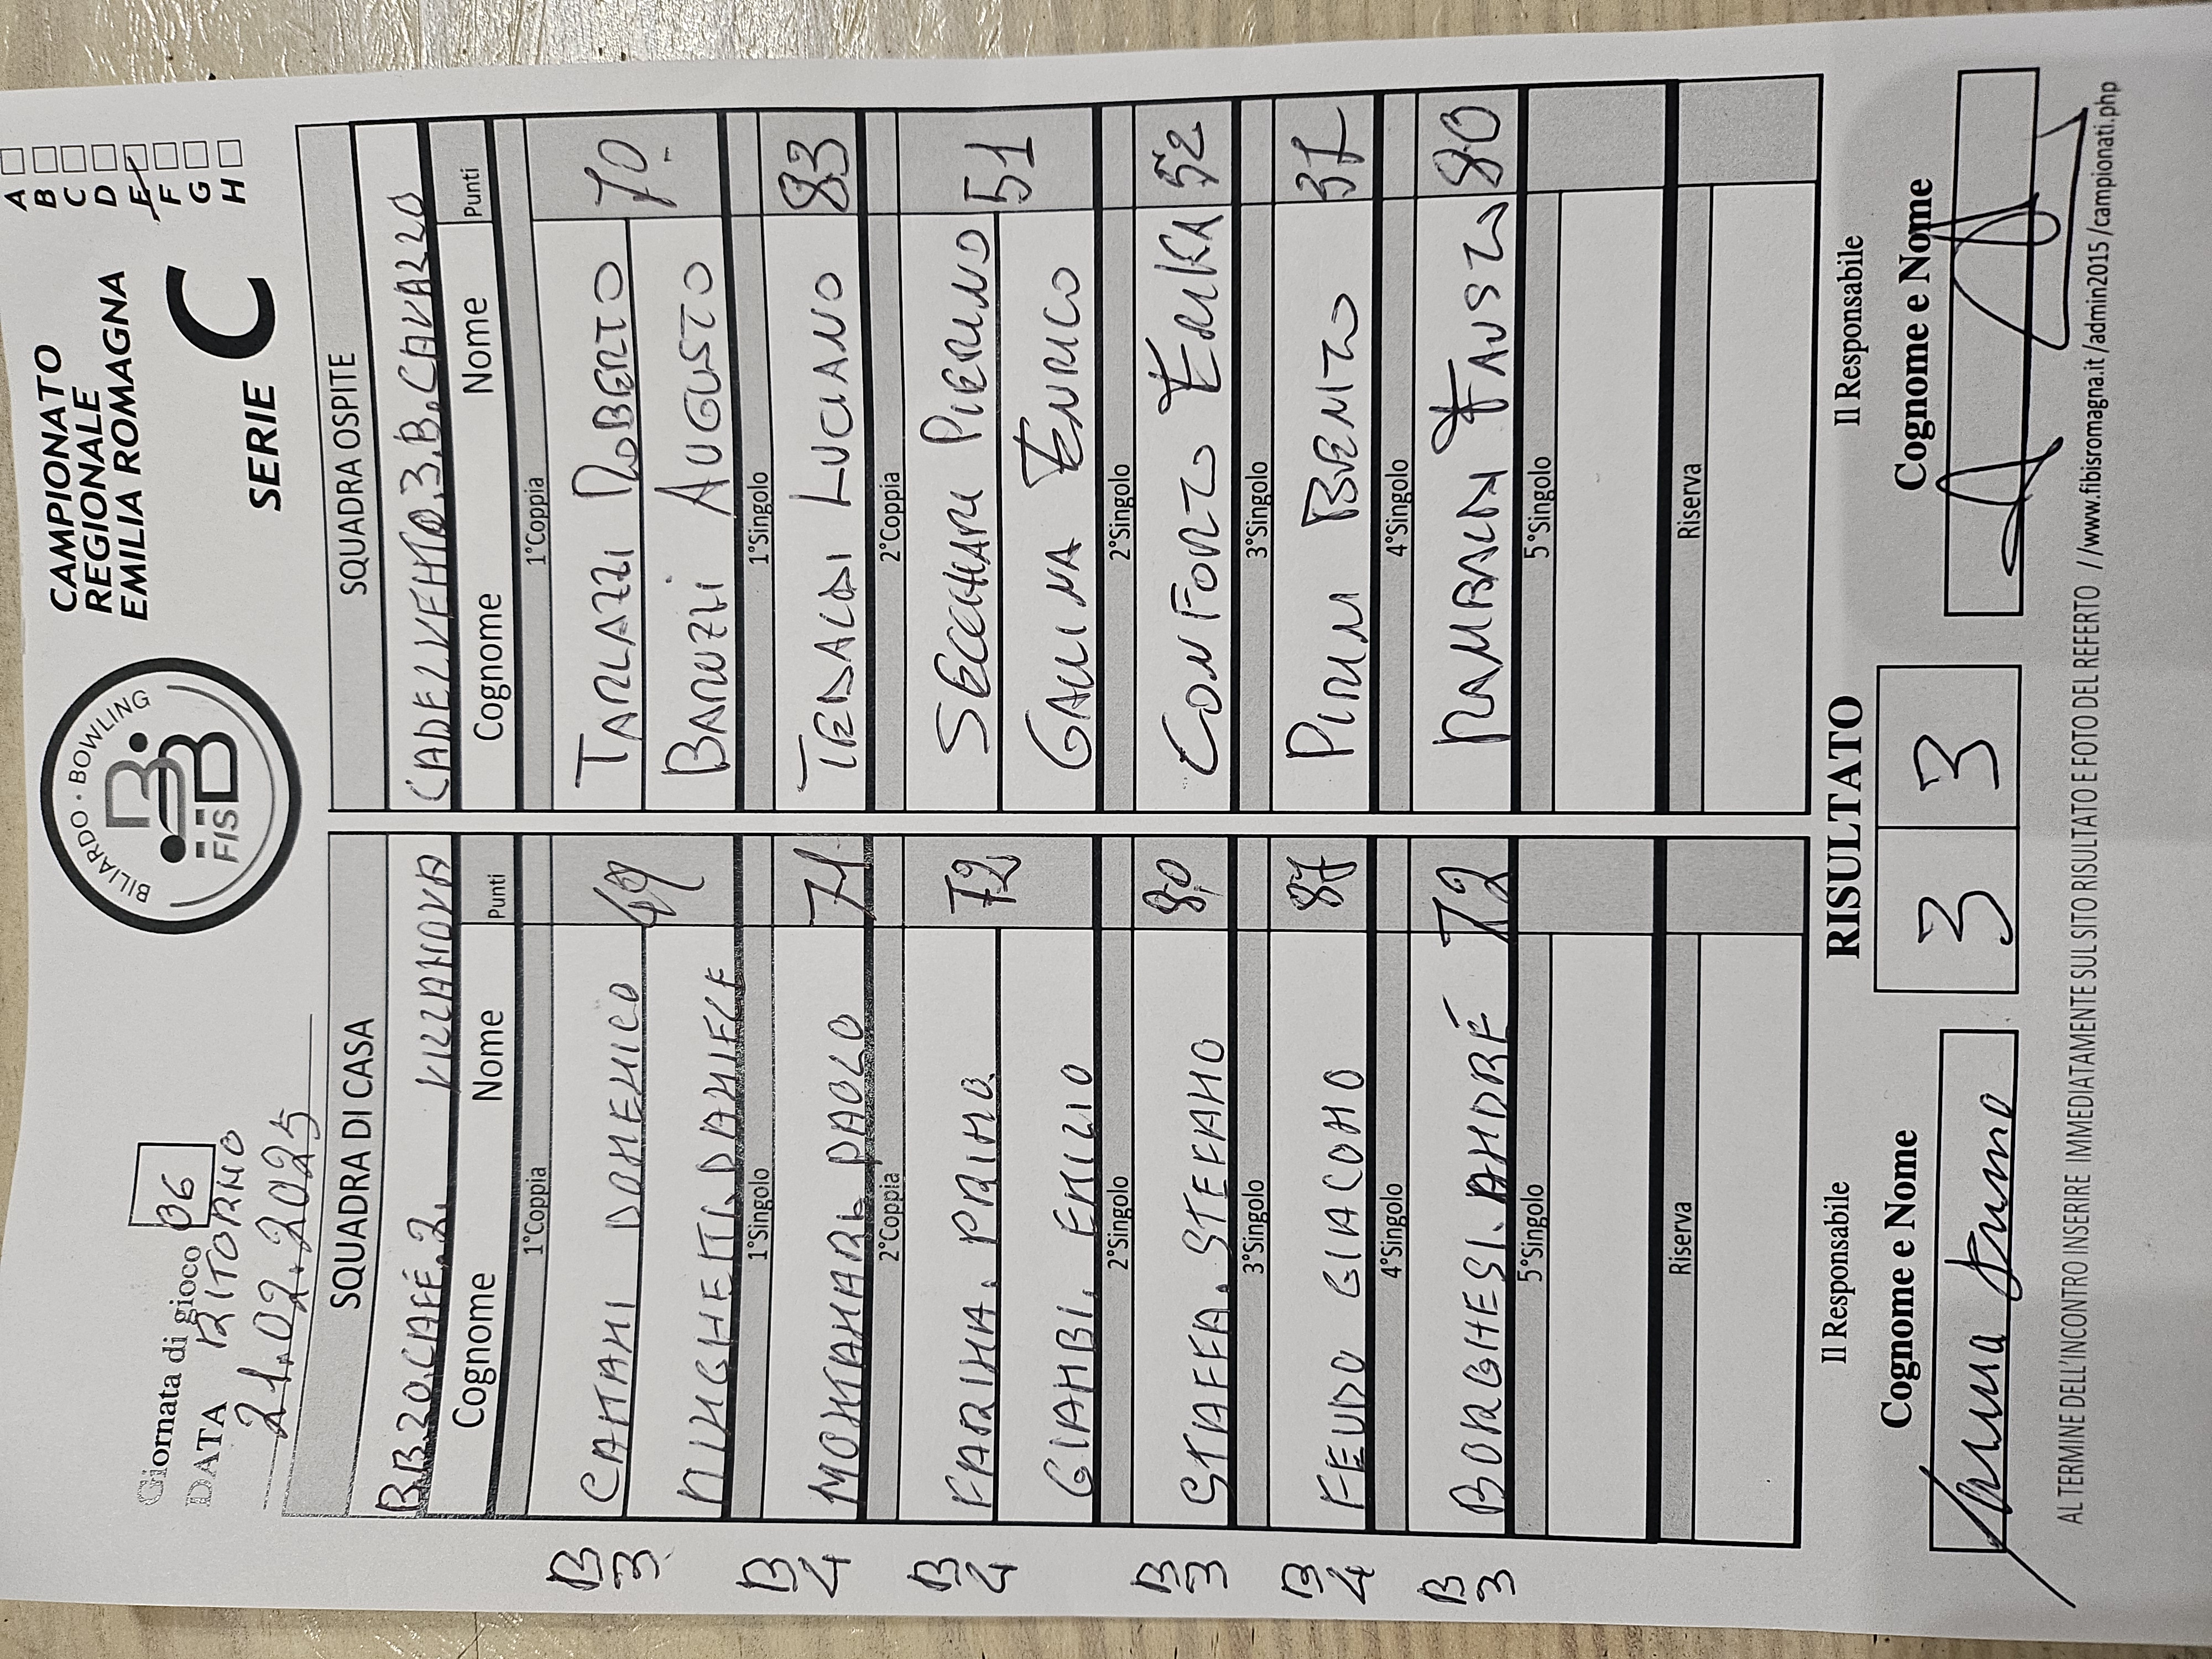 Giornata di gioco B6
DATA RITORNO
21.02.2025
BILIARDO · BOWLING
FISBB
CAMPIONATO
REGIONALE
EMILIA ROMAGNA
SERIE C
A
B
C
D
E
F
G
H
SQUADRA DI CASA
B.B.20.CAFÉ.2. VILLANOVA
Cognome Nome Punti
1°Coppia
B3
CANTANI DOMENICO
MINGHETTI.DANIELE
69
1°Singolo
B4
MONTANARI.PAOLO 71
2°Coppia
B4
FARINA. PRIMO.
GIAMBI. EMILIO
72
2°Singolo
B3
STAFFA. STEFANO 80
3°Singolo
B4
FEUDO GIACOMO 87
4°Singolo
B3
BORGHESI.ANDRÉ 72
5°Singolo
Riserva
SQUADRA OSPITE
CADELVENTO.3.B.CAVALLO
Cognome Nome Punti
1°Coppia
TARLAZZI ROBERTO
BARUZZI AUGUSTO
70
1°Singolo
TEDALDI LUCIANO 83
2°Coppia
SECCHIARI PIERINO
GALLINA ENRICO
51
2°Singolo
CONFORTO ERIKA 52
3°Singolo
PIRINI BRENTO 37
4°Singolo
RAMBALDI FAUSTO 80
5°Singolo
Riserva
Il Responsabile
Cognome e Nome
RISULTATO
3 3
Il Responsabile
Cognome e Nome
AL TERMINE DELL'INCONTRO INSERIRE IMMEDIATAMENTE SUL SITO RISULTATO E FOTO DEL REFERTO //www.fibisromagna.it/admin2015/campionati.php